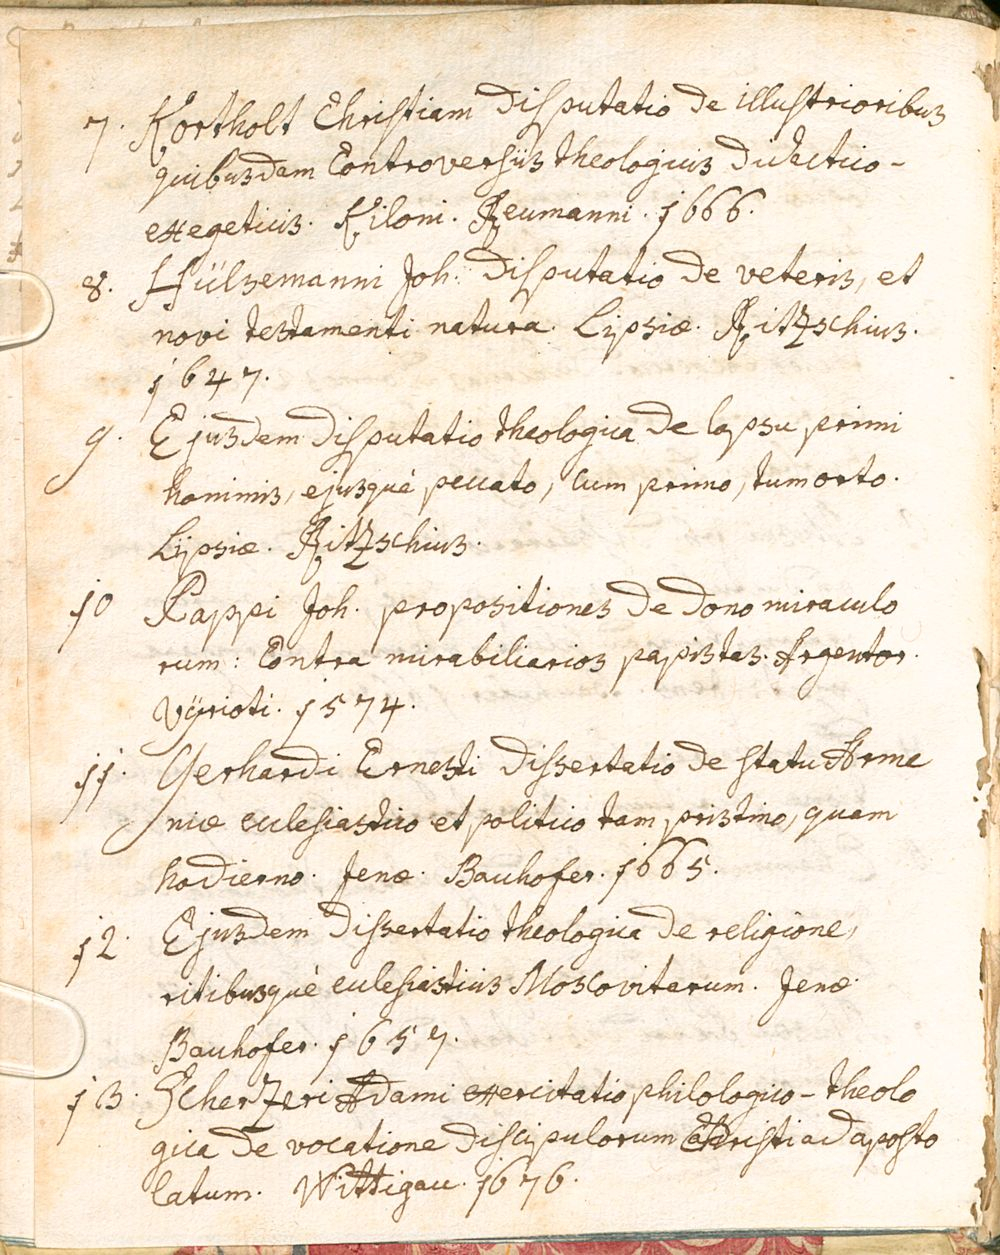 7. Kortholt Christiam Disputatio de illustrioribus
quibusdam Controversiis theologicis didactico-
exegeticis. Kiloni. Reumanni. 1666.
8. Hülsemanni Joh. Disputatio de veteris, et
novi testamenti natura. Lipsiæ. Ritzschius.
1647.
9. Ejusdem disputatio theologica de lapsu primi
hominis, ejusquè peccato, cum primo, tum orto.
Lipsiæ. Ritzschius.
10 Pappi Joh. propositiones de dono miraculo
rum: Contra mirabiliarios papistas. Argentor.
Vÿrioti. 1574.
11. Gerhardi Ernesti Dissertatio de statu Arme
niæ ecclesiastico et politico tam pristino, quam
hodierno. Jenæ. Bauhofer. 1665.
12. Ejusdem dissertatio theologica de religione,
ritibusquè ecclesiasticis Moscovitarum. Jenæ.
Bauhofer. 1657.
13. Scherzeri Adami exercitatio philologico-theolo
gica de vocatione discipulorum Christi ad aposto
latum. Wittigau. 1676.